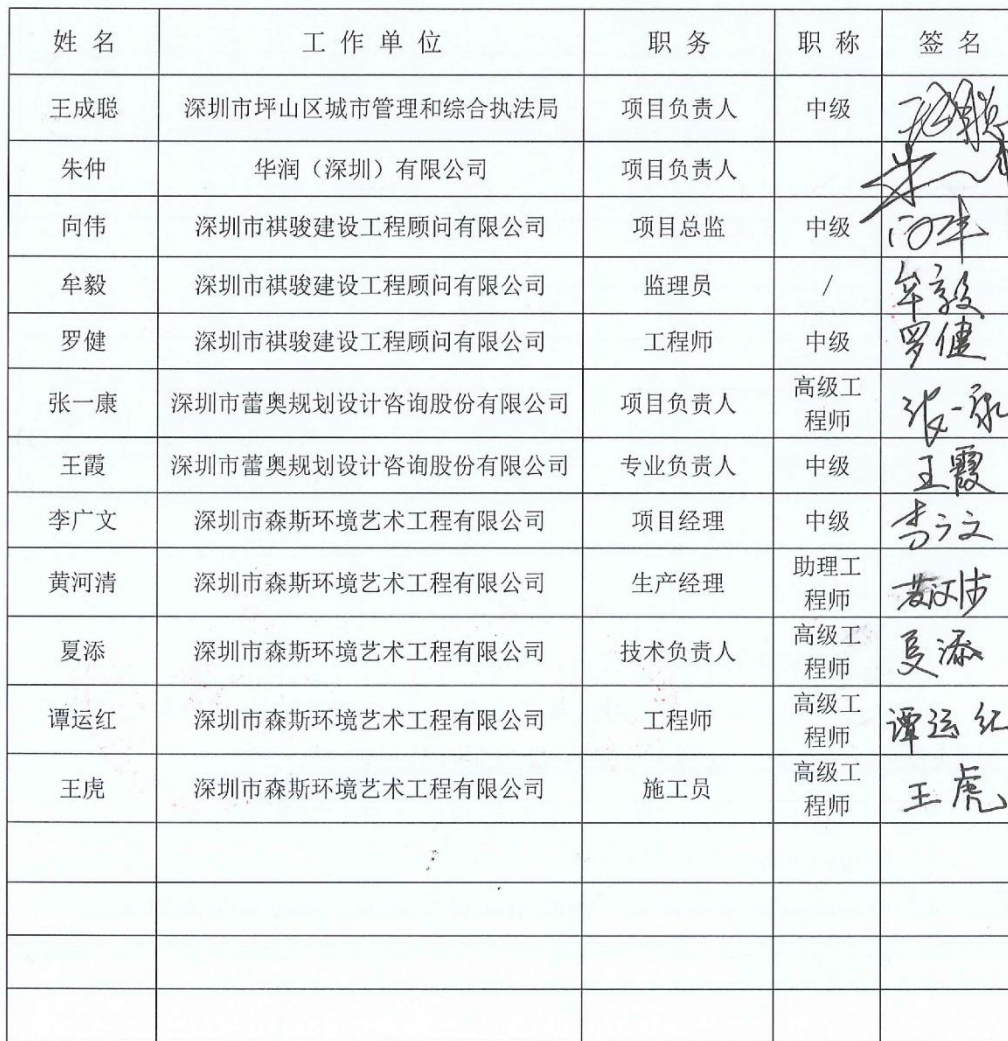 姓名 工作单位 职务 职称 签名
王成聪 深圳市坪山区城市管理和综合执法局 项目负责人 中级
朱仲 华润（深圳）有限公司 项目负责人
向伟 深圳市祺骏建设工程顾问有限公司 项目总监 中级 向伟
牟毅 深圳市祺骏建设工程顾问有限公司 监理员 / 牟毅
罗健 深圳市祺骏建设工程顾问有限公司 工程师 中级 罗健
张一康 深圳市蕾奥规划设计咨询股份有限公司 项目负责人 高级工程师 张一康
王霞 深圳市蕾奥规划设计咨询股份有限公司 专业负责人 中级 王霞
李广文 深圳市森斯环境艺术工程有限公司 项目经理 中级 李广文
黄河清 深圳市森斯环境艺术工程有限公司 生产经理 助理工程师 黄河清
夏添 深圳市森斯环境艺术工程有限公司 技术负责人 高级工程师 夏添
谭运红 深圳市森斯环境艺术工程有限公司 工程师 高级工程师 谭运红
王虎 深圳市森斯环境艺术工程有限公司 施工员 高级工程师 王虎